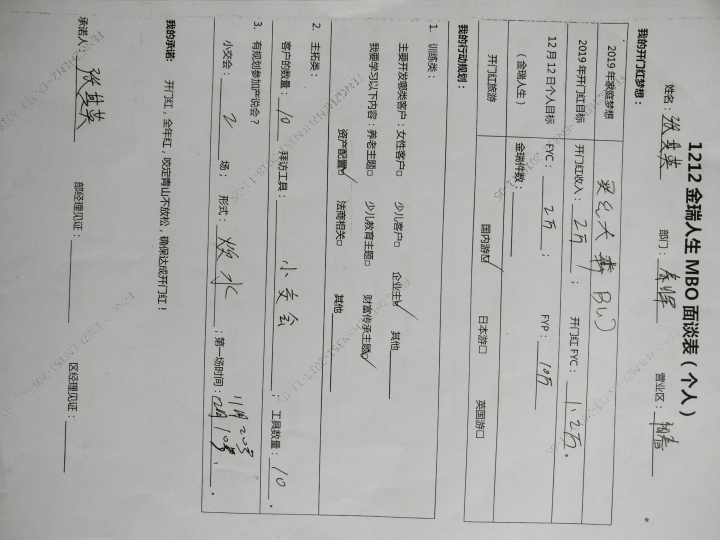 1212金瑞人生MBO面谈表（个人）
姓名：张楚英 部门： 营业区：
我的开门红梦想：
2019年家庭梦想 买台大奔
2019年开门红目标 开门红收入：2万； 开门红FYC：1.2万。
12月12日个人目标 FYC：2万； FYP：10万
（金瑞人生） 金瑞件数：
开门红旅游 国内游☑ 日本游□ 英国游□
我的行动规划：
1. 训练类：
主要开发哪类客户：女性客户□ 少儿客户□ 企业主☑ 其他
我要学习以下内容：养老主题□ 少儿教育主题□ 财富传承主题☑
资产配置☑ 法商相关□ 其他
2. 主拓类：
客户的数量：10 拜访工具：小交会； 工具数量：10。
3. 有规划参加产说会？
小交会：2场； 形式：； 第一场时间：11月20号
12月10号。
我的承诺: 开门红，全年红，咬定青山不放松，确保达成开门红！
承诺人：张楚英 部经理见证： 区经理见证：